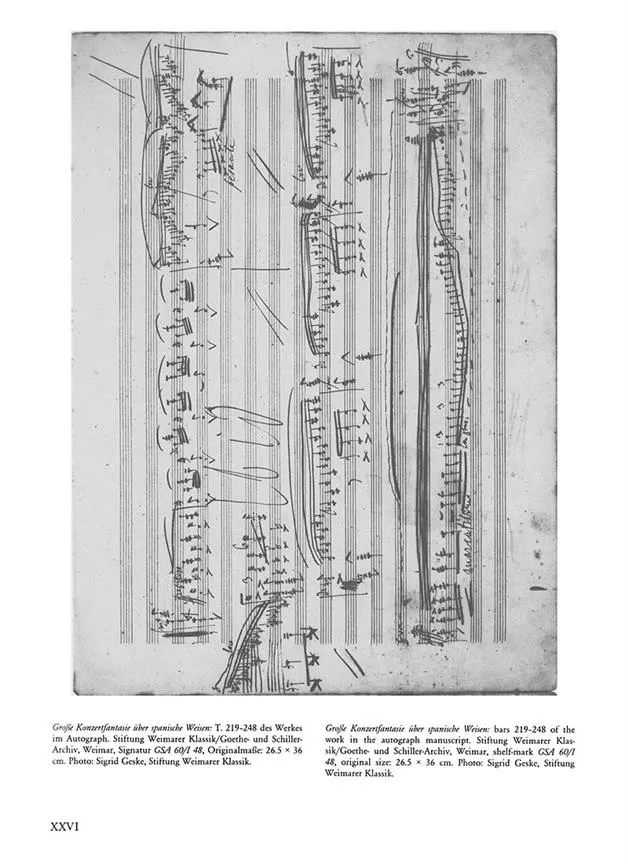 pesante
8va
Große Konzertfantasie über spanische Weisen: T. 219-248 des Werkes
im Autograph. Stiftung Weimarer Klassik/Goethe- und Schiller-
Archiv, Weimar, Signatur GSA 60/I 48, Originalmaße: 26.5 × 36
cm. Photo: Sigrid Geske, Stiftung Weimarer Klassik.
Große Konzertfantasie über spanische Weisen: bars 219-248 of the
work in the autograph manuscript. Stiftung Weimarer Klas-
sik/Goethe- und Schiller-Archiv, Weimar, shelf-mark GSA 60/I
48, original size: 26.5 × 36 cm. Photo: Sigrid Geske, Stiftung
Weimarer Klassik.
XXVI